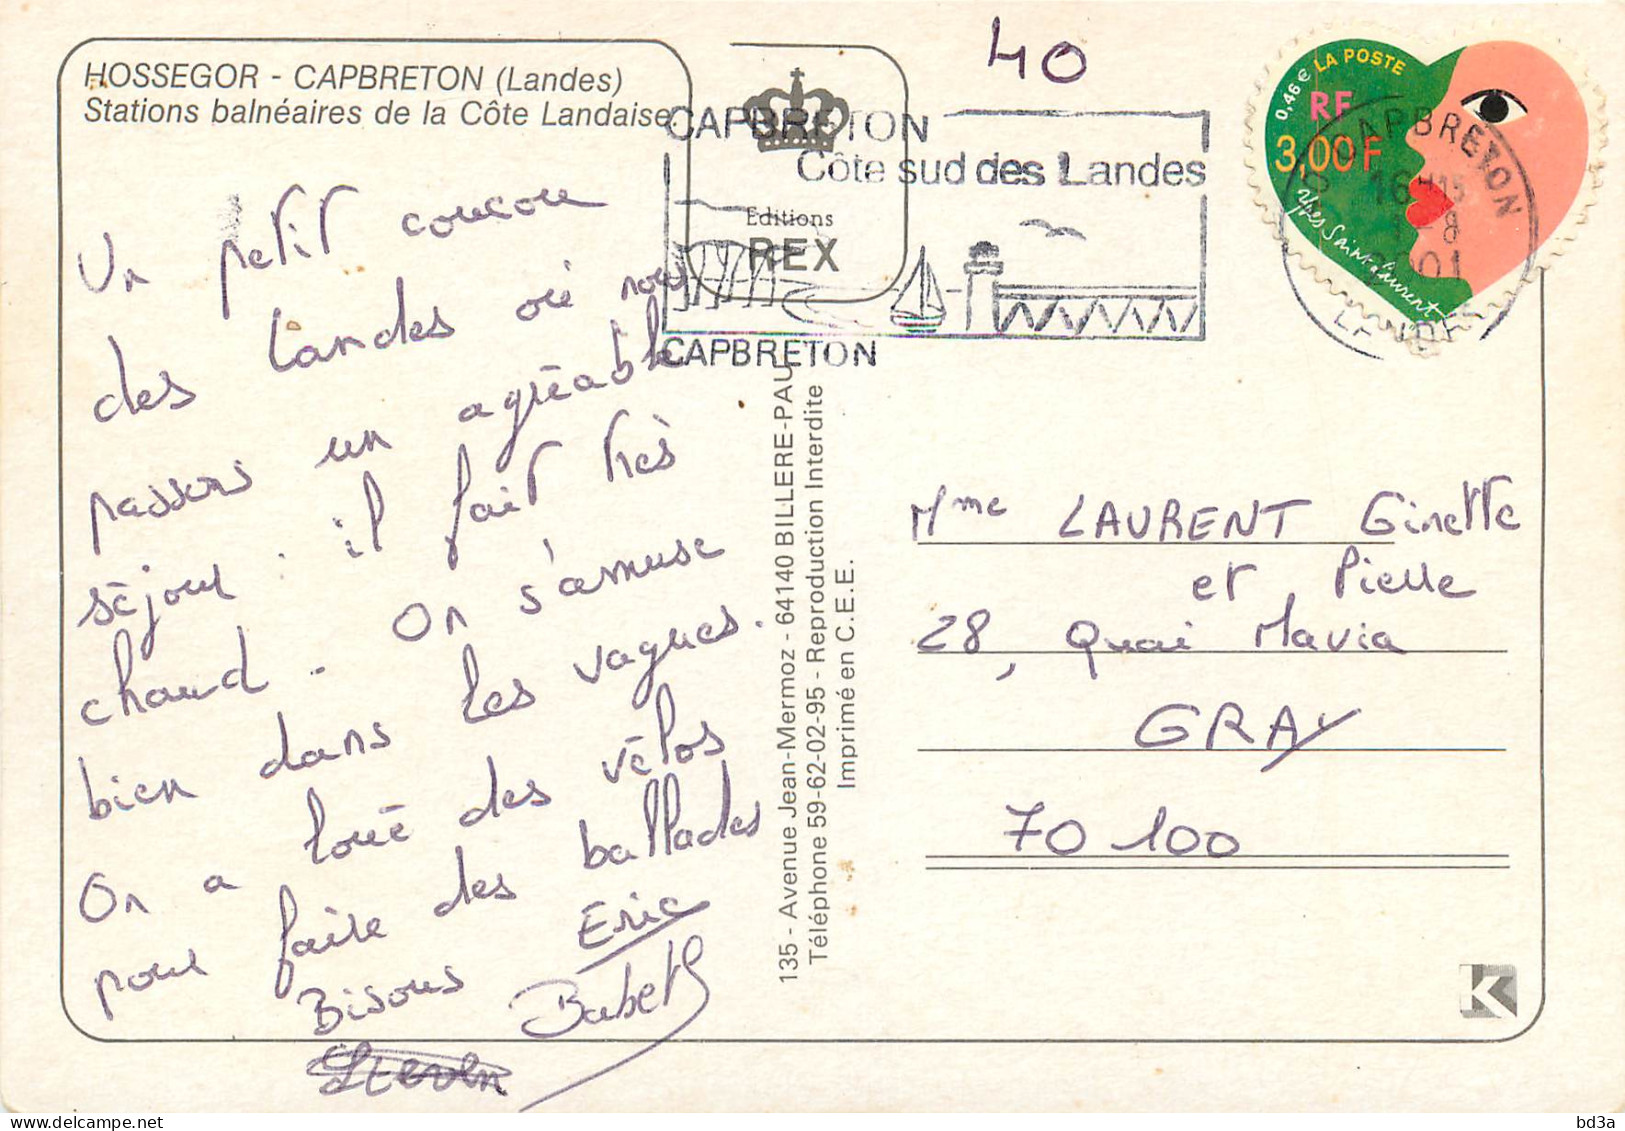 HOSSEGOR - CAPBRETON (Landes)
Stations balnéaires de la Côte Landaise
Un petit coucou
des Landes où nous
passons un agréable
séjour. il fait très
chaud. On s'amuse
bien dans les vagues.
On a loué des vélos
pour faire des ballades
Bisous Eric
Babeth
Steven
40
CAPBRETON
Côte sud des Landes
CAPBRETON
Editions
REX
135 - Avenue Jean-Mermoz - 64140 BILLERE-PAU
Téléphone 59-62-02-95 - Reproduction Interdite
Imprimé en C.E.E.
0,46 € LA POSTE
RF
3,00 F
Yves Saint Laurent
CAPBRETON
16H15
8
2001
LANDES
Mme LAURENT Ginette
et Pierre
28, Quai Mavia
GRAY
70 100
K
bd3a